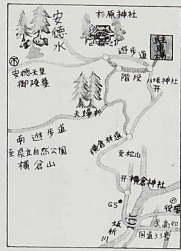 安徳水
杉原神社
遊歩道
階段
安徳天皇
御陵墓
夫婦杉
南遊歩道
至県立自然公園
横倉山
横倉林道
至松山
横倉神社
GS
至高知
国道33号